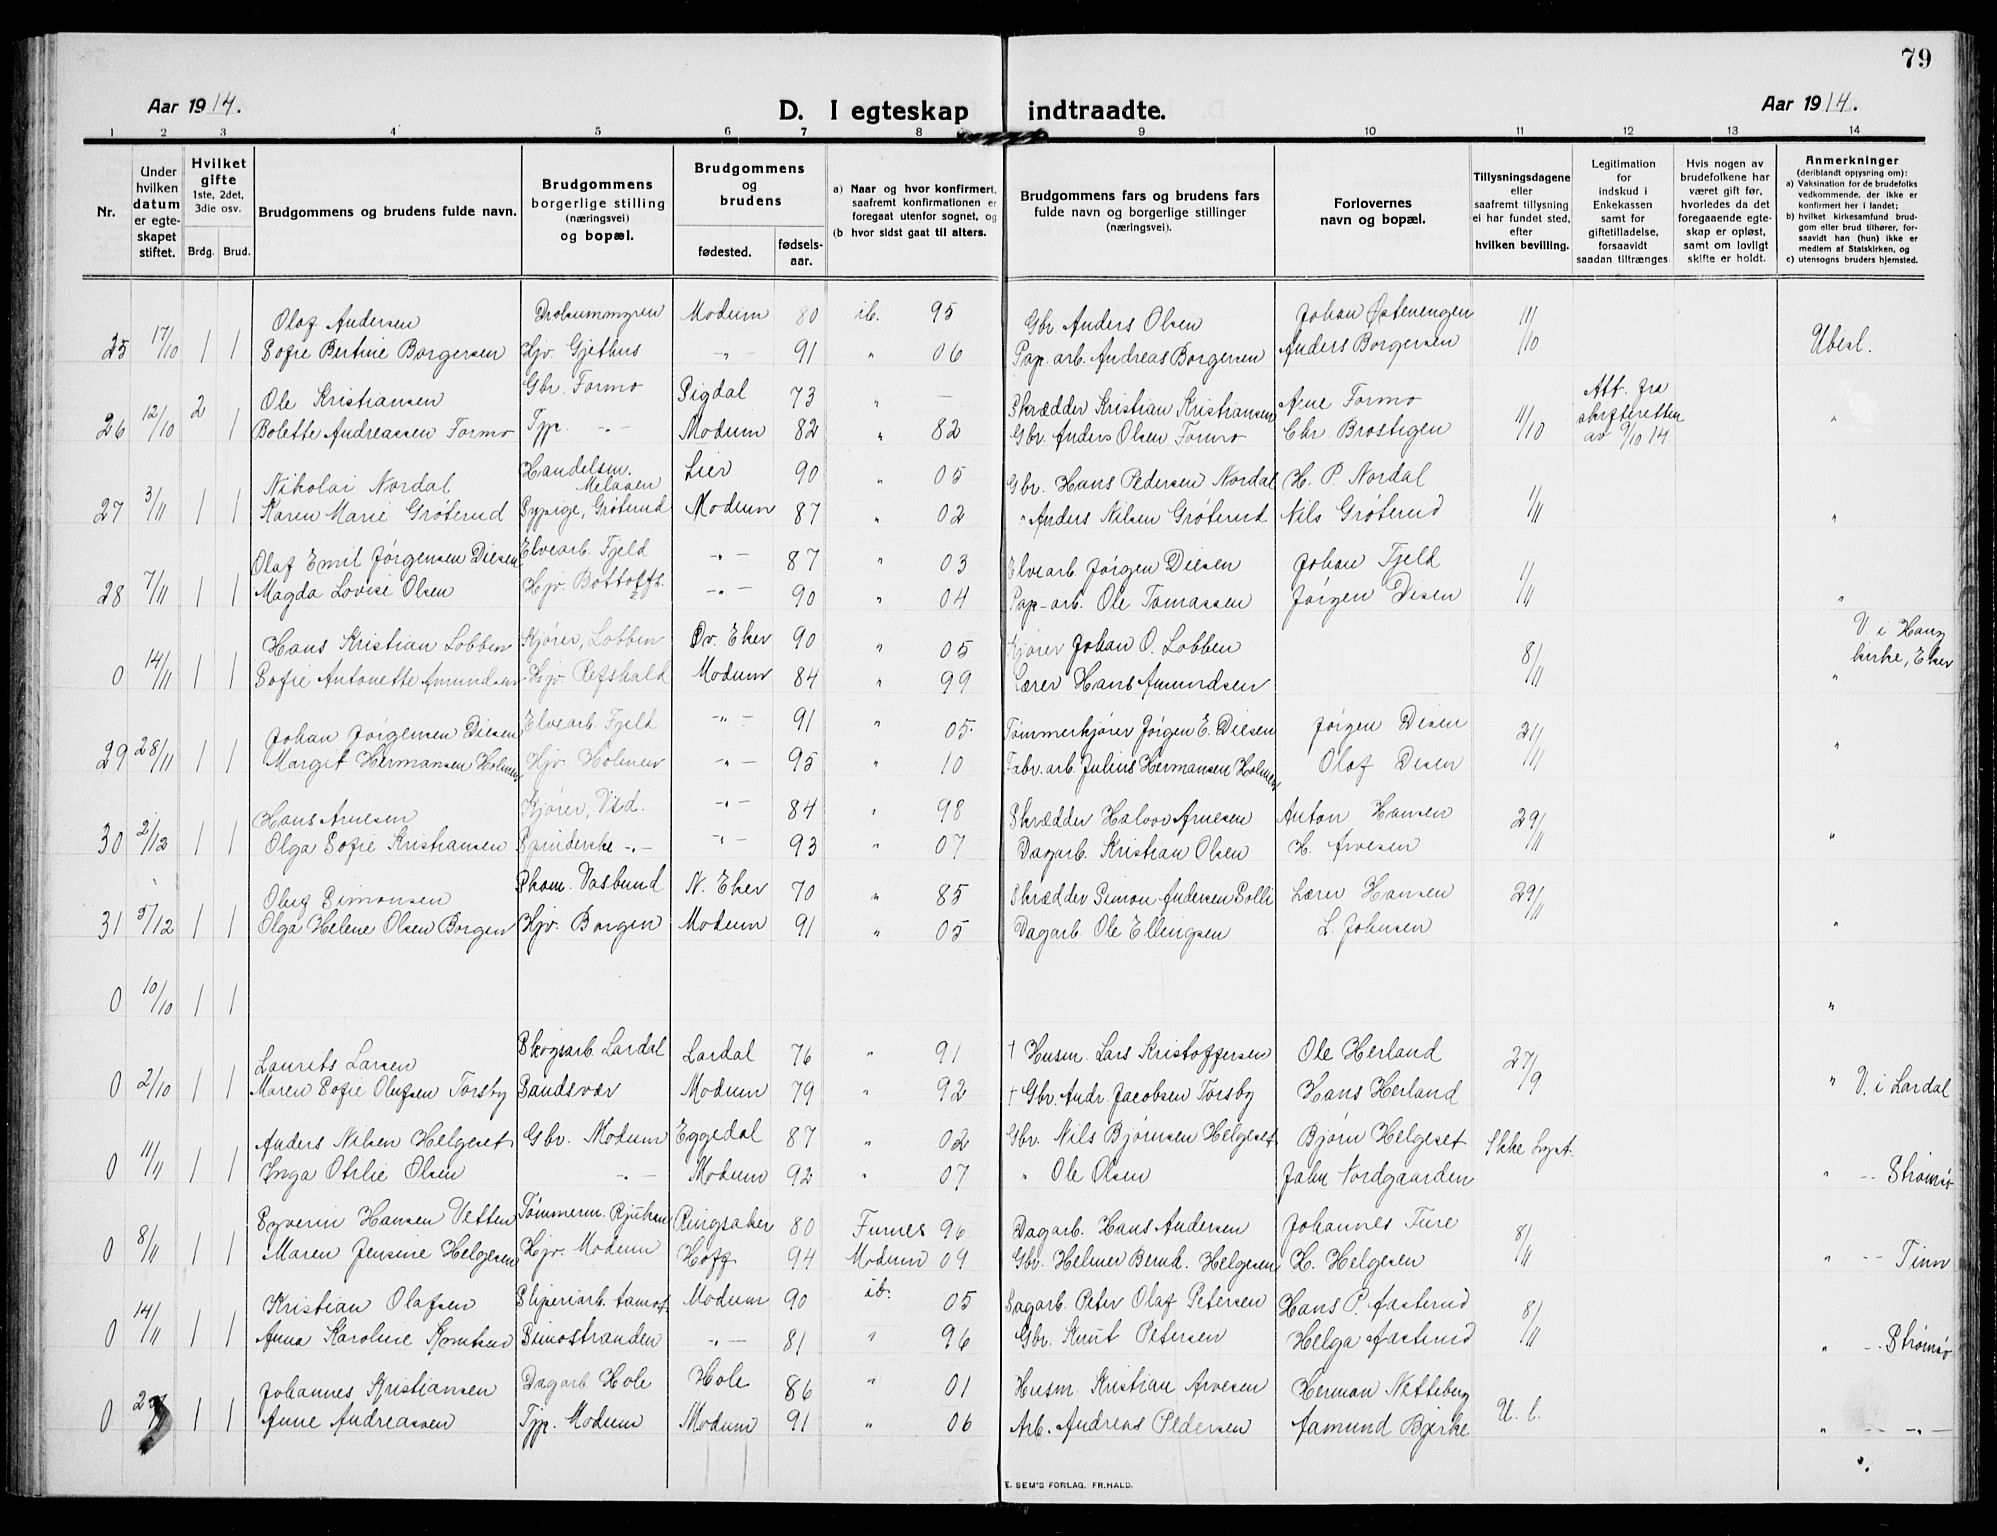 79
Aar 1914. D. I egteskap indtraadte. Aar 1914.
1 2 3 4 5 6 7 8 9 10 11 12 13 14
Nr.
Under hvilken datum er egteskapet stiftet.
Hvilket gifte 1ste, 2det, 3die osv. Brdg. Brud.
Brudgommens og brudens fulde navn.
Brudgommens borgerlige stilling (næringsvei) og bopæl.
Brudgommens og brudens fødested. fødselsaar.
a) Naar og hvor konfirmert, saafremt konfirmationen er foregaat utenfor sognet, og
(b hvor sidst gaat til alters.
Brudgommens fars og brudens fars fulde navn og borgerlige stillinger (næringsvei).
Forlovernes navn og bopæl.
Tillysningsdagene eller saafremt tillysning ei har fundet sted, efter hvilken bevilling.
Legitimation for indskud i Enkekassen samt for giftetilladelse, forsaavidt saadan tiltrænges
Hvis nogen av brudefolkene har været gift før, hvorledes da det foregaaende egteskap er opløst, samt om lovligt skifte er holdt.
Anmerkninger (deriblandt opjysning om):
a) Vaksination for de brudefolks vedkommende, der ikke er konfirmert her i landet;
b) hvilket kirkesamfund brudgom eller brud tilhører, forsaavidt han (hun) ikke er medlem af Statskirken, og
c) utensogns bruders hjemsted.
Olaf Andersen Drolsummyren Modum 80 ib. 95 Gbr Anders Olsen Johan Østenengen 11/
25 17/10 1 1 Sofie Bertine Borgersen Hjv. Gjethus -"- 91 " 06 Pap. arb. Andreas Borgersen Anders Borgersen /10 Ubesl.
Ole Kristiansen Gbr. Formo Sigdal 73 " — Skrædder Kristian Kristiansen Arne Formo Att. fra
26 12/10 2 1 Bolette Andreassen Formo Tjp. -"- Modum 82 " 82 Gbr. Anders Olsen Formo Chr. Brostigen 11/10 skifteretten av 9/10 14. "
Nikolai Nordal Handelsm. Melaaen Lier 90 " 05 Gbr. Hans Pedersen Nordal H. P. Nordal
27 3/11 1 1 Karen Marie Grøterud Sypige, Grøterud Modum 87 " 02 " Anders Nilsen Grøterud Nils Grøterud 1/11 "
Olaf Emil Jørgensen Diesen Elvearb. Fjeld -"- 87 " 03 Elvearb. Jørgen Diesen Johan Fjeld
28 7/11 1 1 Magda Lovise Olsen Hjv. Bottolfs. -"- 90 " 04 Pap-arb. Ole Tomassen Jørgen Disen 1/11 "
Hans Kristian Lobben Kjører, Lobben Øv. Eker 90 " 05 Kjører Johan O. Lobben V. i Haug
0 14/11 1 1 Sofie Antonette Amundsen Hjv. Refshald Modum 84 " 99 Lærer Hans Amundsen 8/11 kirke, Eker "
Johan Jørgensen Diesen Elvearb. Fjeld -"- 91 " 05. Tømmerkjører Jørgen E. Diesen Jørgen Disen
29 28/11 1 1 Margit Hermansen Holmen Hjv. Holmen -"- 95 " 10 Fabr. arb. Julius Hermansen Holmen Olaf Disen 21/11 "
Hans Arnesen Kjører, -"- 84 " 98 Skrædder Halvor Arnesen Anton Hansen
30 2/12 1 1 Olga Sofie Kristiansen Spinderske -"- -"- 93 " 07 Dagarb. Kristian Olsen H. Arvesen 29/11 "
Oluf Simonsen Skom. Vasbund N. Eker 70 " 85 Skrædder Simon Andersen Solli Lærer Hansen
31 5/12 1 1 Olga Helene Olsen Borgen Hjv. Borgen Modum 91 " 05 Dagarb. Ole Ellingsen L. Johnsen 29/11 "
0 10/10 1 1 "
Laurits Larsen Skogsarb. Lardal Lardal 76 " 91 † Husm. Lars Kristoffersen Ole Herland
0 2/10 1 1 Maren Sofie Olufsen Torsby Sandsvær Modum 79 " 92 † Gbr. Andr. Jacobsen Torsby Hans Herland 27/9 " V. i Lardal
Anders Nilsen Helgeset Gbr. Modum Eggedal 87 " 02 Gbr. Nils Bjørnsen Helgeset Bjørn Helgeset Ikke lyst.
0 11/11 1 1 Inga Otilie Olsen -"- Modum 92 " 07 " Ole Olsen John Nordgaarden " -"- Strømsø
Syverin Hansen Vetten Tømmerm. Rjukan Ringsaker 80 Furnes 96 Dagarb. Hans Andersen Johannes Ture
0 8/11 1 1 Maren Jensine Helgesen Hjv. Modum Hoff 94 Modum 09 Gbr. Helmer Bernd. Helgesen H. Helgesen 8/11 " -"- Tinn
Kristian Olafsen Sliperiarb. Aamot Modum 90 ib. 05 Sagarb. Peter Olaf Petersen Hans P. Aasterud
0 14/11 1 1 Anna Karoline Knutsen Simostranden -"- 81 " 96 Gbr. Knut Petersen Helga Aasterud 8/11 " -"- Strømsø
Johannes Kristiansen Dagarb Hole Hole 86 " 01 Husm Kristian Arvesen Herman Netteberg
0 1 1 Anne Andreassen Tjp. Modum Modum 91 " 06 Arb. Andreas Pedersen Aamund Bjerke U. l. " -"-
E. SEM'S FORLAG. FR.HALD.